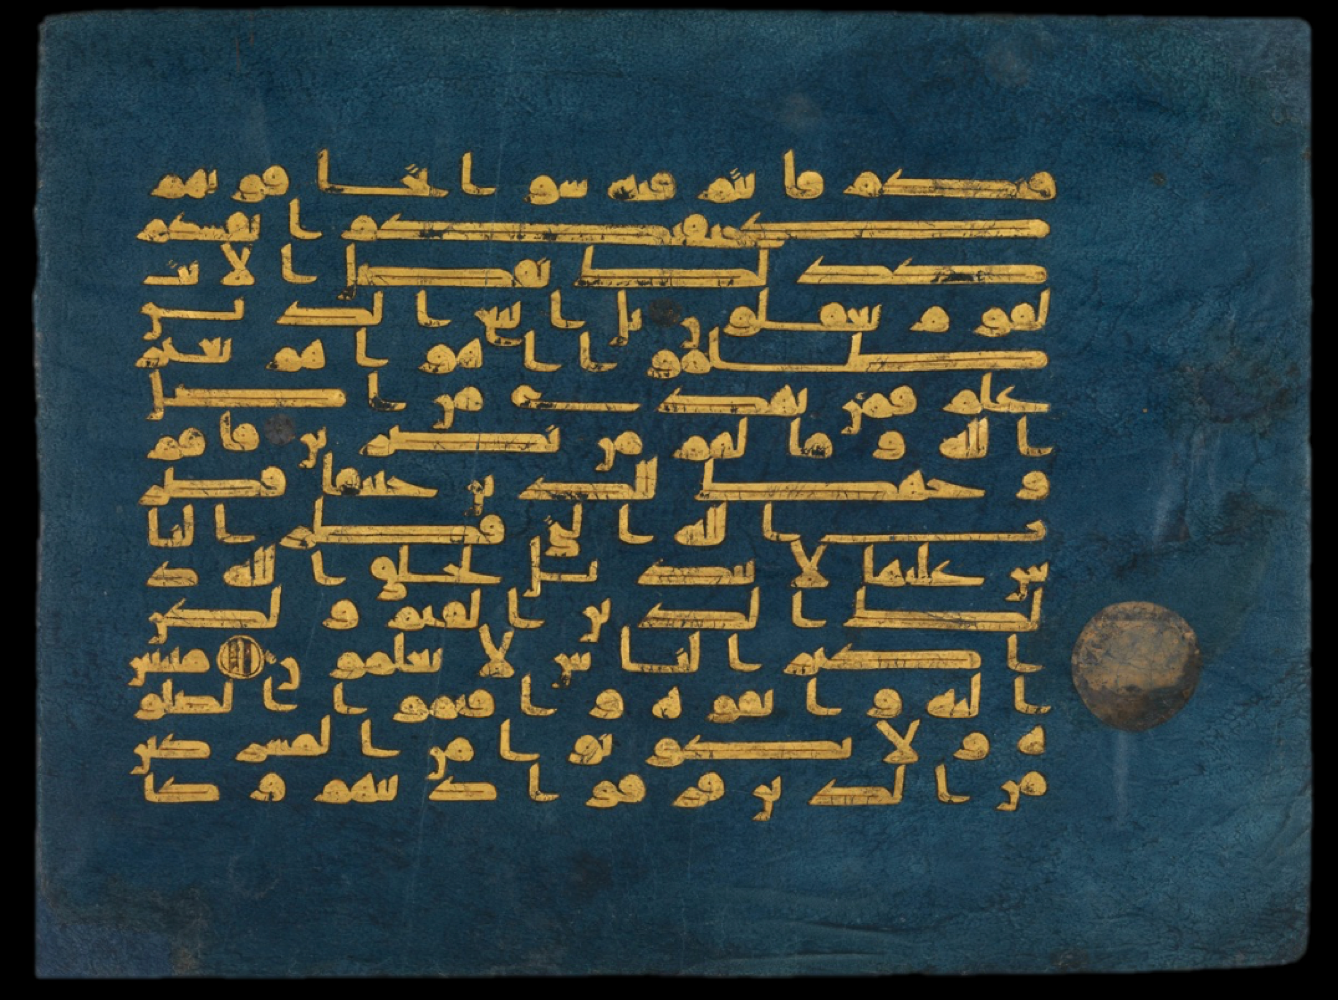 قنكم فانتم فيه سوا تخافونهم
كخيفتكم انفسكم
كذلك نفصل الا يت
لقوم يعقلون بل اتبع الذين
ظلموا اهواهم بغير
علم فمن يهدي من اضل
الله وما لهم من نصرين فاقم
وجهك للدين حنيفا فطر
ت الله التي فطر النا
س عليها لا تبديل لخلق الله ذ
لك الدين القيم ولكن
اكثر الناس لا يعلمون منيبين
اليه واتقوه واقيموا الصلو
ة ولا تكونوا من المشركين
من الذين فرقوا دينهم وكا